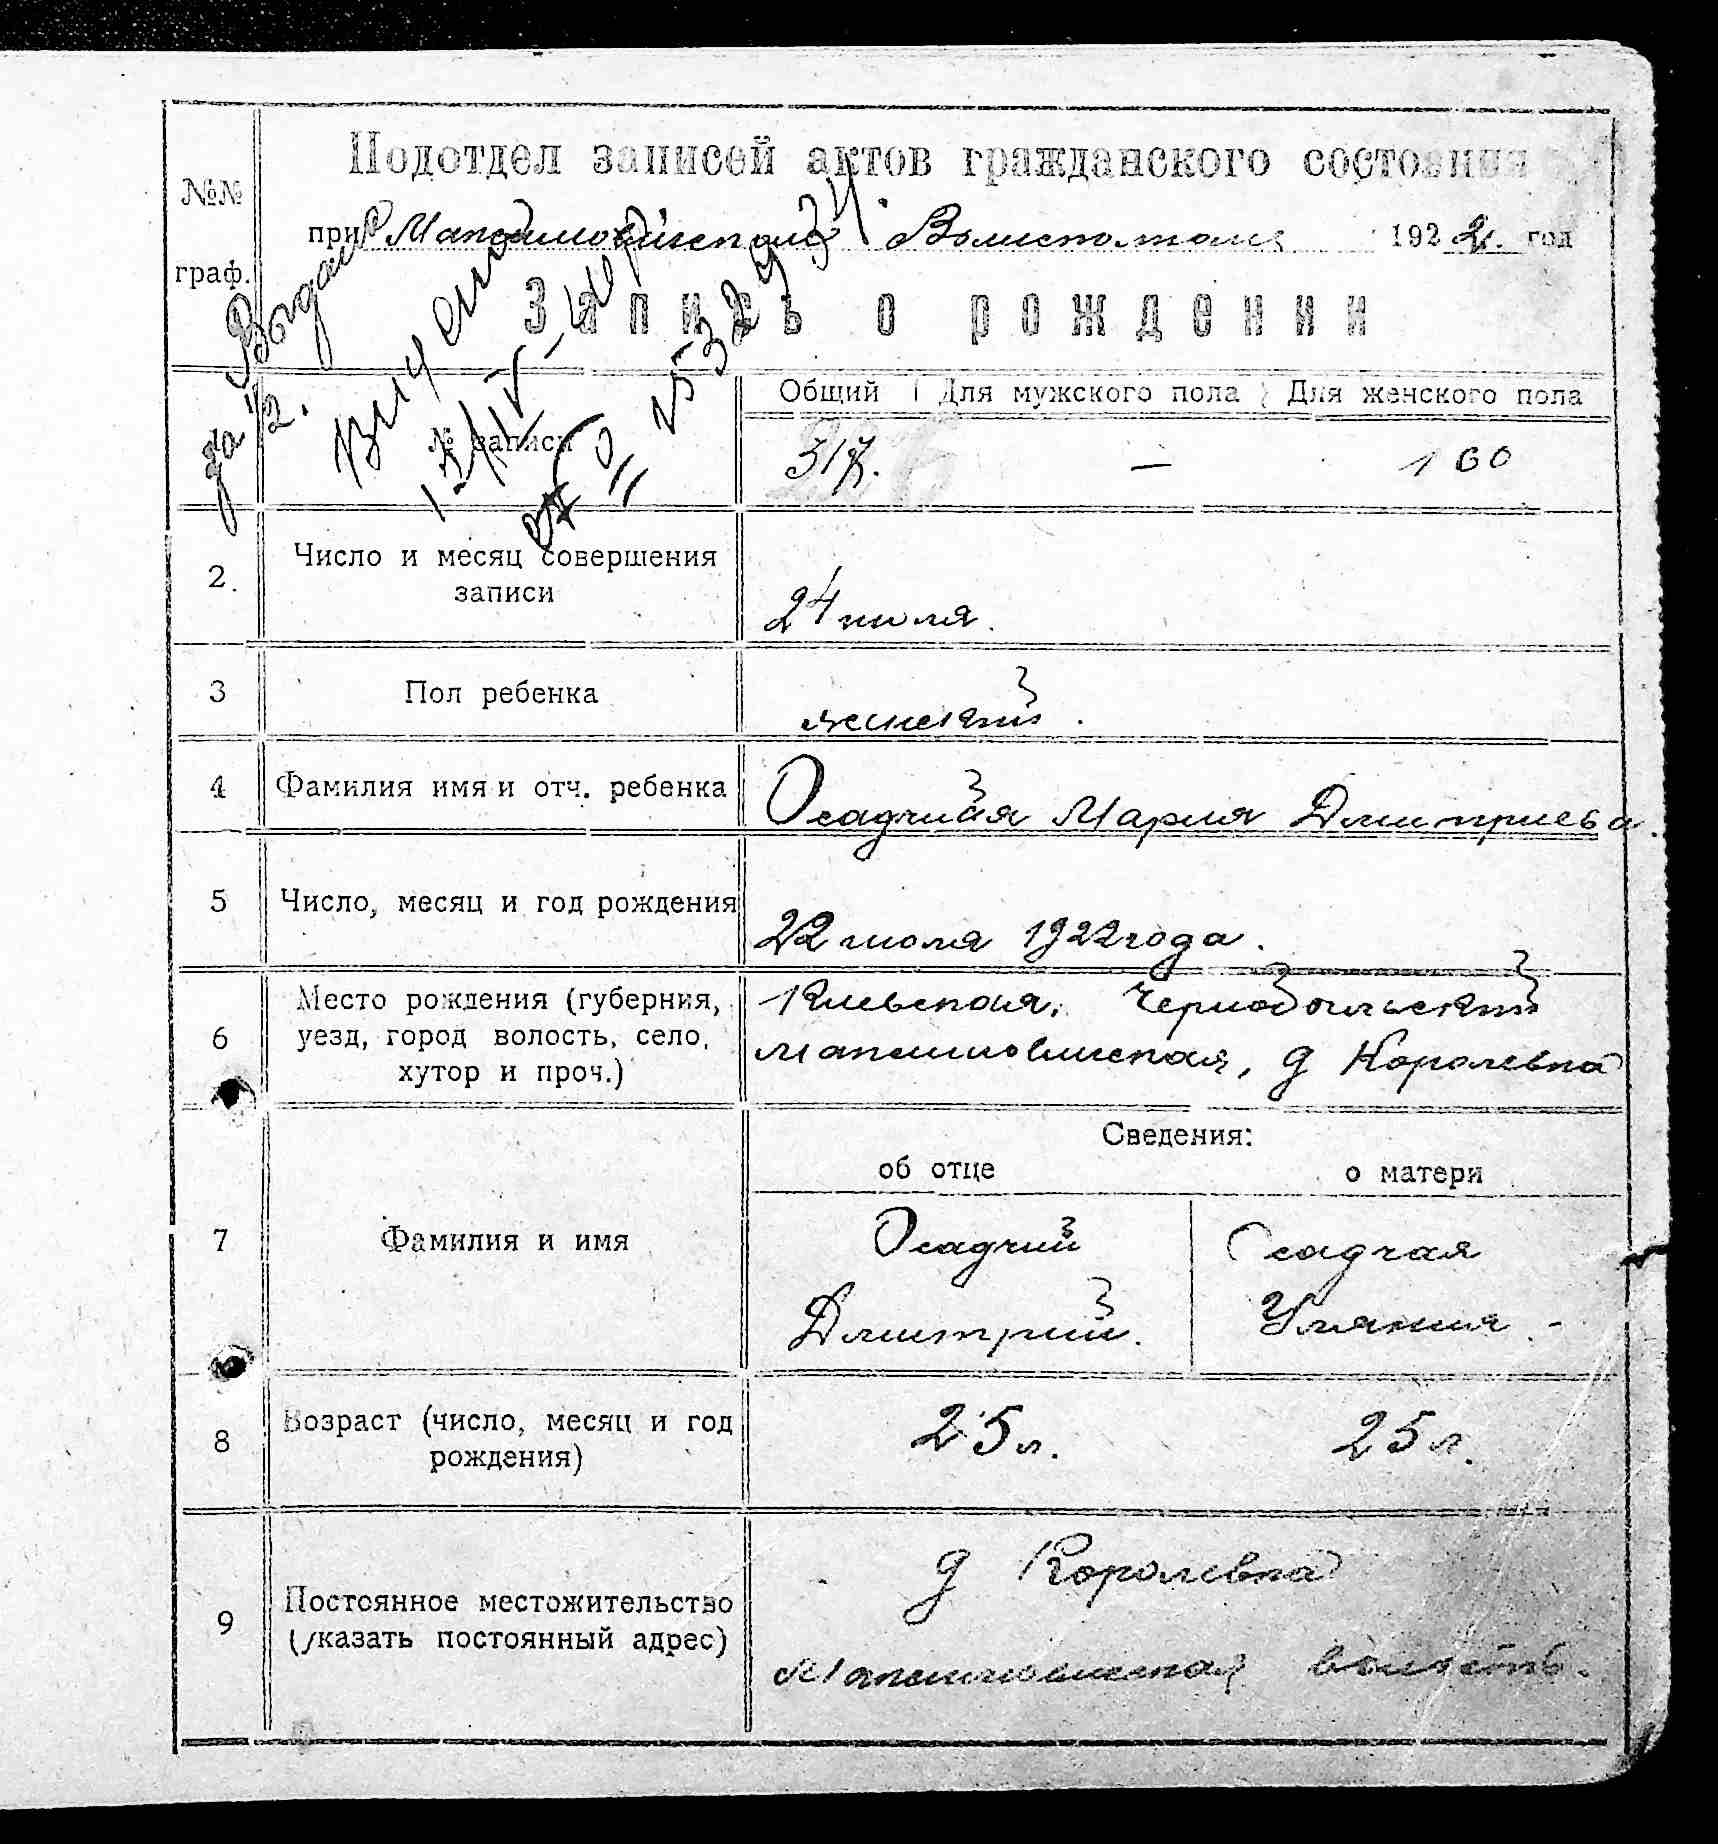 №№ граф.
Подотдел записей актов гражданского состояния
при Максимовичском Волисполкоме 1922 год
Запись о рождении
Выдано
Общий Для мужского пола Для женского пола
№ записи 317. — 160
2. Число и месяц совершения записи
24 июля.
3 Пол ребенка
женский.
4 Фамилия имя и отч. ребенка
Осадчийая Мария Дмитриева.
5 Число, месяц и год рождения
22 июля 1922 года.
6 Место рождения (губерния, уезд, город волость, село, хутор и проч.)
Киевская, Чернобыльский
Максимовичская, д Королевка
Сведения:
об отце о матери
7 Фамилия и имя
Осадчий Осадчая
Дмитрий. Ульяния.
8 Возраст (число, месяц и год рождения)
25 л. 25 л.
9 Постоянное местожительство (указать постоянный адрес)
д Королевка
Максимовичская волость.